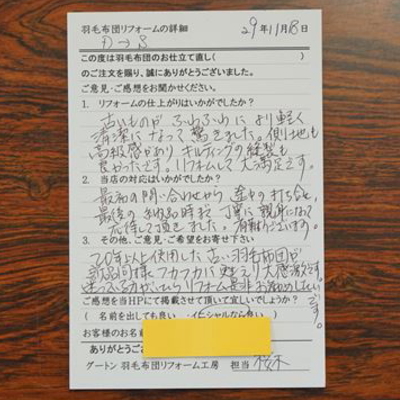 羽毛布団リフォームの詳細 29年11月18日
D→S
この度は羽毛布団のお仕立て直し( )
のご注文を賜り、誠にありがとうございました。
ご意見・ご感想をお聞かせください。
1. リフォームの仕上がりはいかがでしたか?
古いものが ふわふわに より軽く
清潔になって驚きました。側地も
高級感があり キルティングの縫製も
良かったです。リフォームして大満足です。
2. 当店の対応はいかがでしたか?
最初の問い合わせから 途中の打ち合せ、
最後の納品時まで 丁寧に親身になって
応待して頂きました。有難うございます。
3. その他、ご意見・ご希望をお寄せ下さい
20年以上使用した古い羽毛布団が
新品同様フカフカに甦えり大感激です。
迷っている方がいたらリフォーム是非お勧めしたいです。
ご感想を当HPにて掲載させて頂いて宜しいでしょうか?
( 名前を出しても良い ・イニシャルなら良い )
お客様のお名前
ありがとうござ
グートン 羽毛布団リフォーム工房 担当